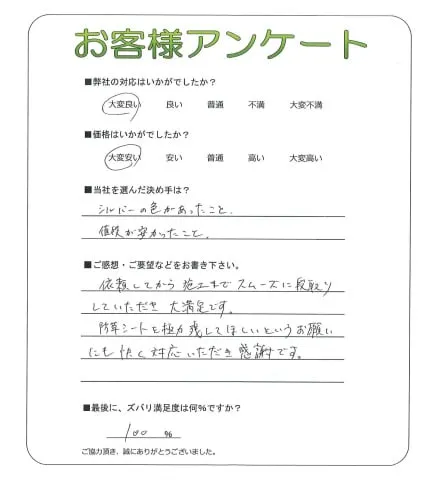 お客様アンケート
■弊社の対応はいかがでしたか？
大変良い 良い 普通 不満 大変不満
■価格はいかがでしたか？
大変安い 安い 普通 高い 大変高い
■当社を選んだ決め手は？
シルバーの色があったこと、
値段が安かったこと、
■ご感想・ご要望などをお書き下さい。
依頼してから施工までスムーズに段取り
していただき大満足です。
防草シートを極力残してほしいというお願い
にも快く対応いただき感謝です。
■最後に、ズバリ満足度は何％ですか？
100 ％
ご協力頂き、誠にありがとうございました。